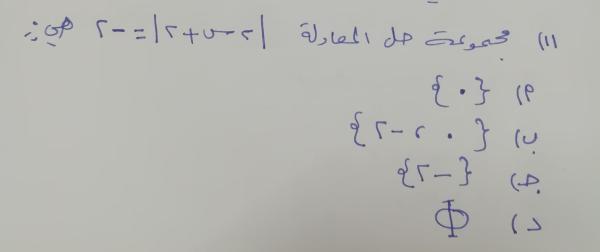 ١١) مجموعة حل المعادلة |٢س+٢| = -٢ هي:
أ) {٠}
ب) {٠ ، -٢}
جـ) {-٢}
د) Φ